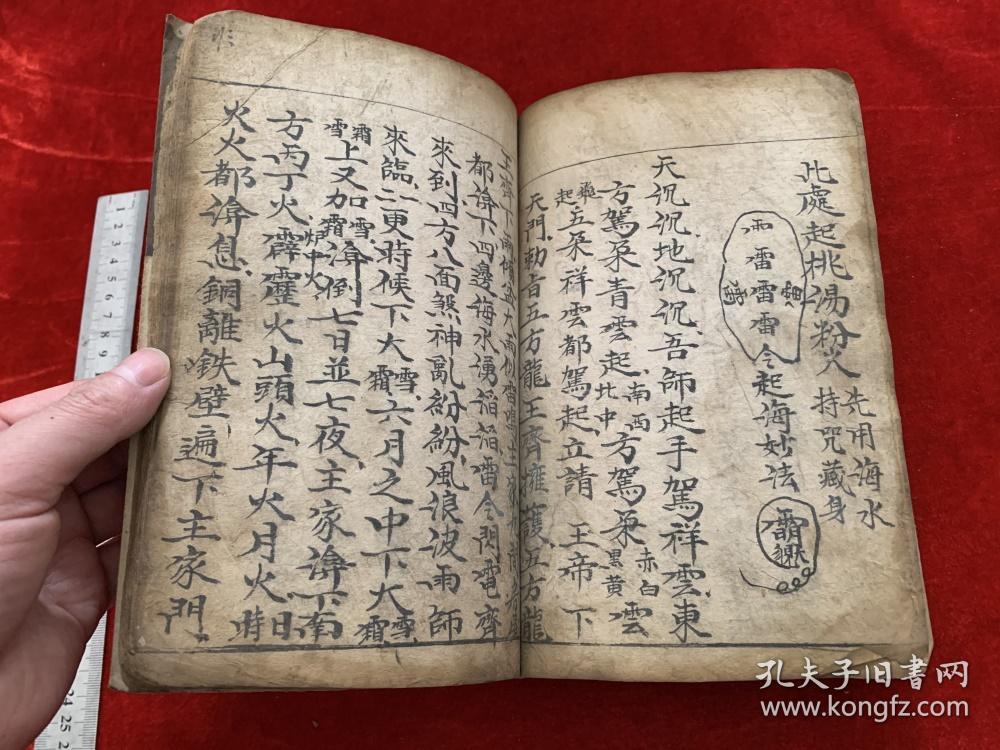 此處起桃湯粉火 先用海水持咒藏身
雨雷雷雷令起海妙法
天沉沉地沉沉吾師起手駕祥雲東
方駕朶青雲起南西北中方駕朶赤白黑黄雲
起五朶祥雲都駕起立請 王帝下
天門勅旨五方龍王齊擁護五方龍
都渰下四邊海水湧滔滔雷令閃電齊
來到四方八面煞神亂紛紛風浪波雨師
來臨二更時候下大雪霜六月之中下大雪霜
雪霜上又加雪霜渰倒七日並七夜主家渰下南
方丙丁火爐中火霹靂火山頭火年火月火日時
火火都渰息銅離鉄壁遍下主家門
孔夫子旧書网
www.kongfz.com